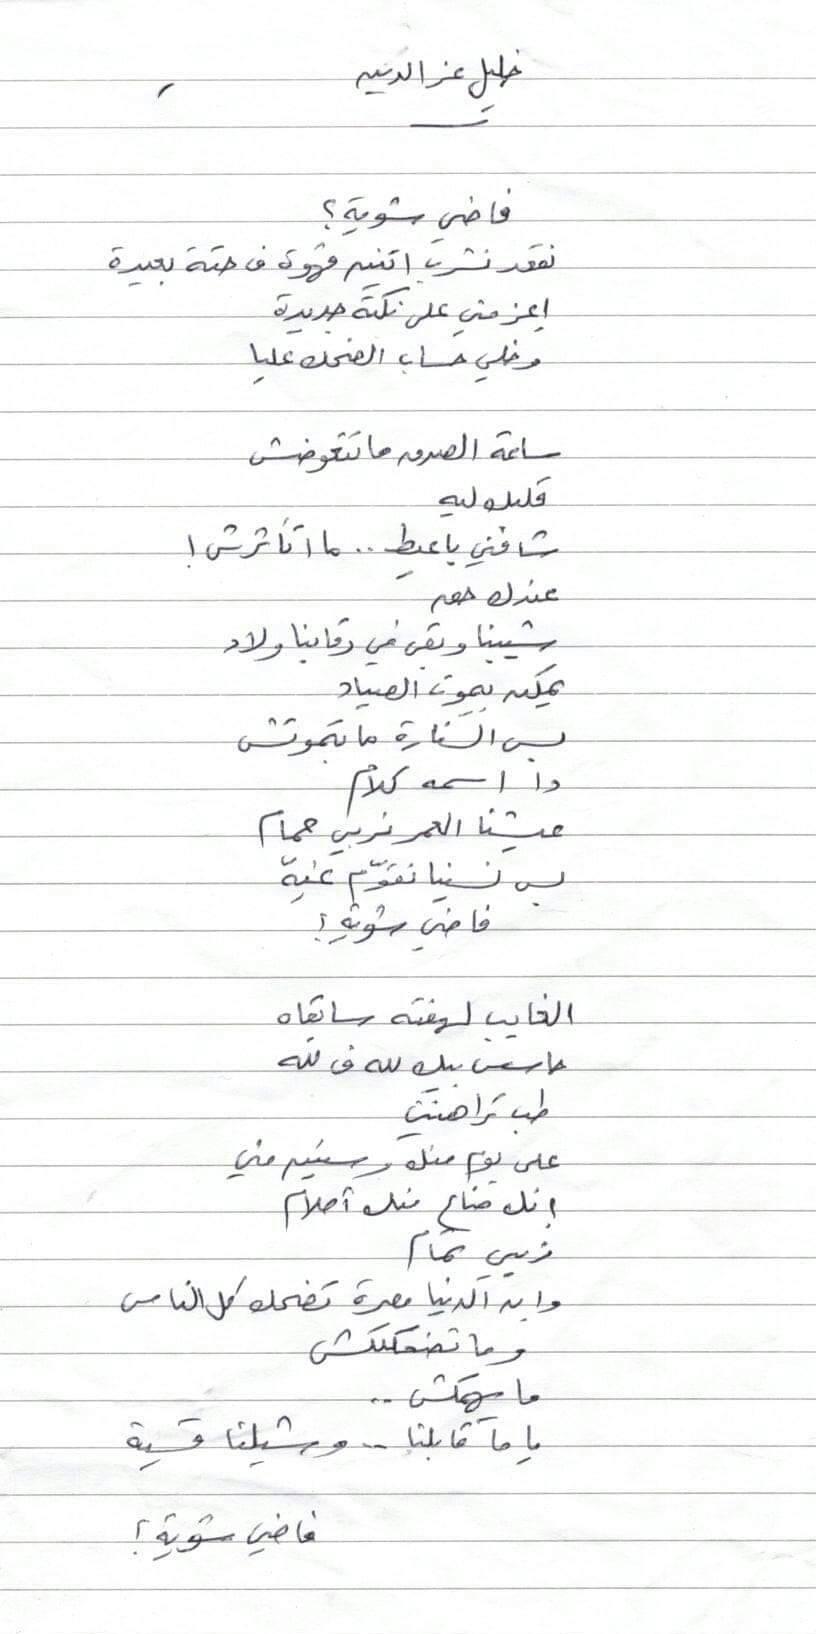 خليل عز الدين
فاضي شوية؟
نقعد نشرب اتنين قهوة ف حتة بعيدة
اعزمني على نكتة جديدة
وخلي حساب الضحك عليا
ساعة الصدق ما تتعوضش
قلبك ليه
شافني باعيط .. ما اتأثرش!
عندك حق
شيبنا وبقى في رقابنا ولاد
يمكن بيموت الصياد
بس السنارة ما بتموتش
دا اسمه كلام
عيشنا العمر نربي حمام
بس نسينا نقوّم غيّة
فاضي شوية؟
الغايب لهفته سابقاه
حاسس بيك لله ف لله
طب تراهنني
على يوم منك وسنين مني
إنك ضاع منك أحلام
زيي تمام
وان الدنيا مصرة تضحك كل الناس
وما تضحكلكش
ما يهمكش ..
ياما قابلنا .. وشيلنا قسية
فاضي شوية؟